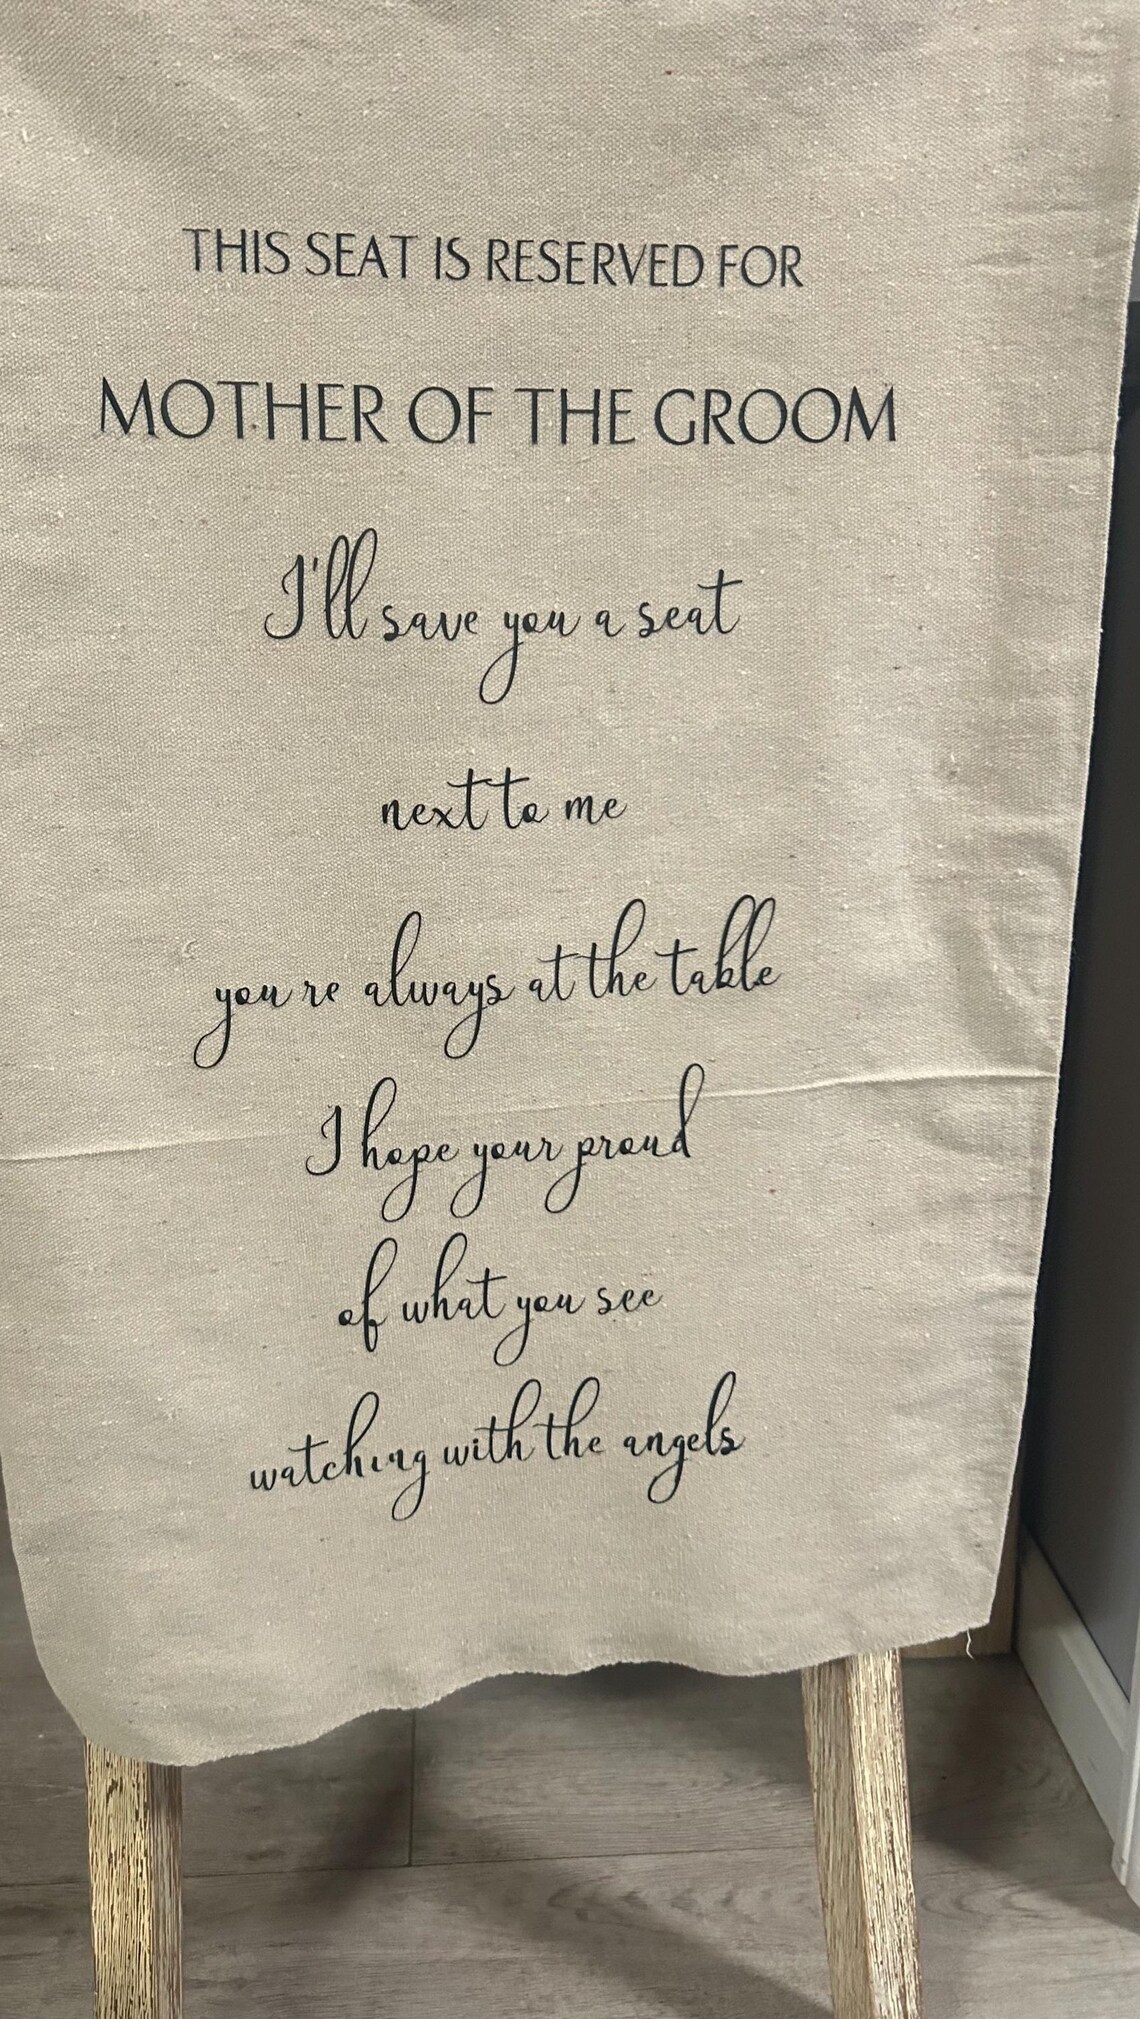 THIS SEAT IS RESERVED FOR
MOTHER OF THE GROOM
I'll save you a seat
next to me
you're always at the table
I hope your proud
of what you see
watching with the angels